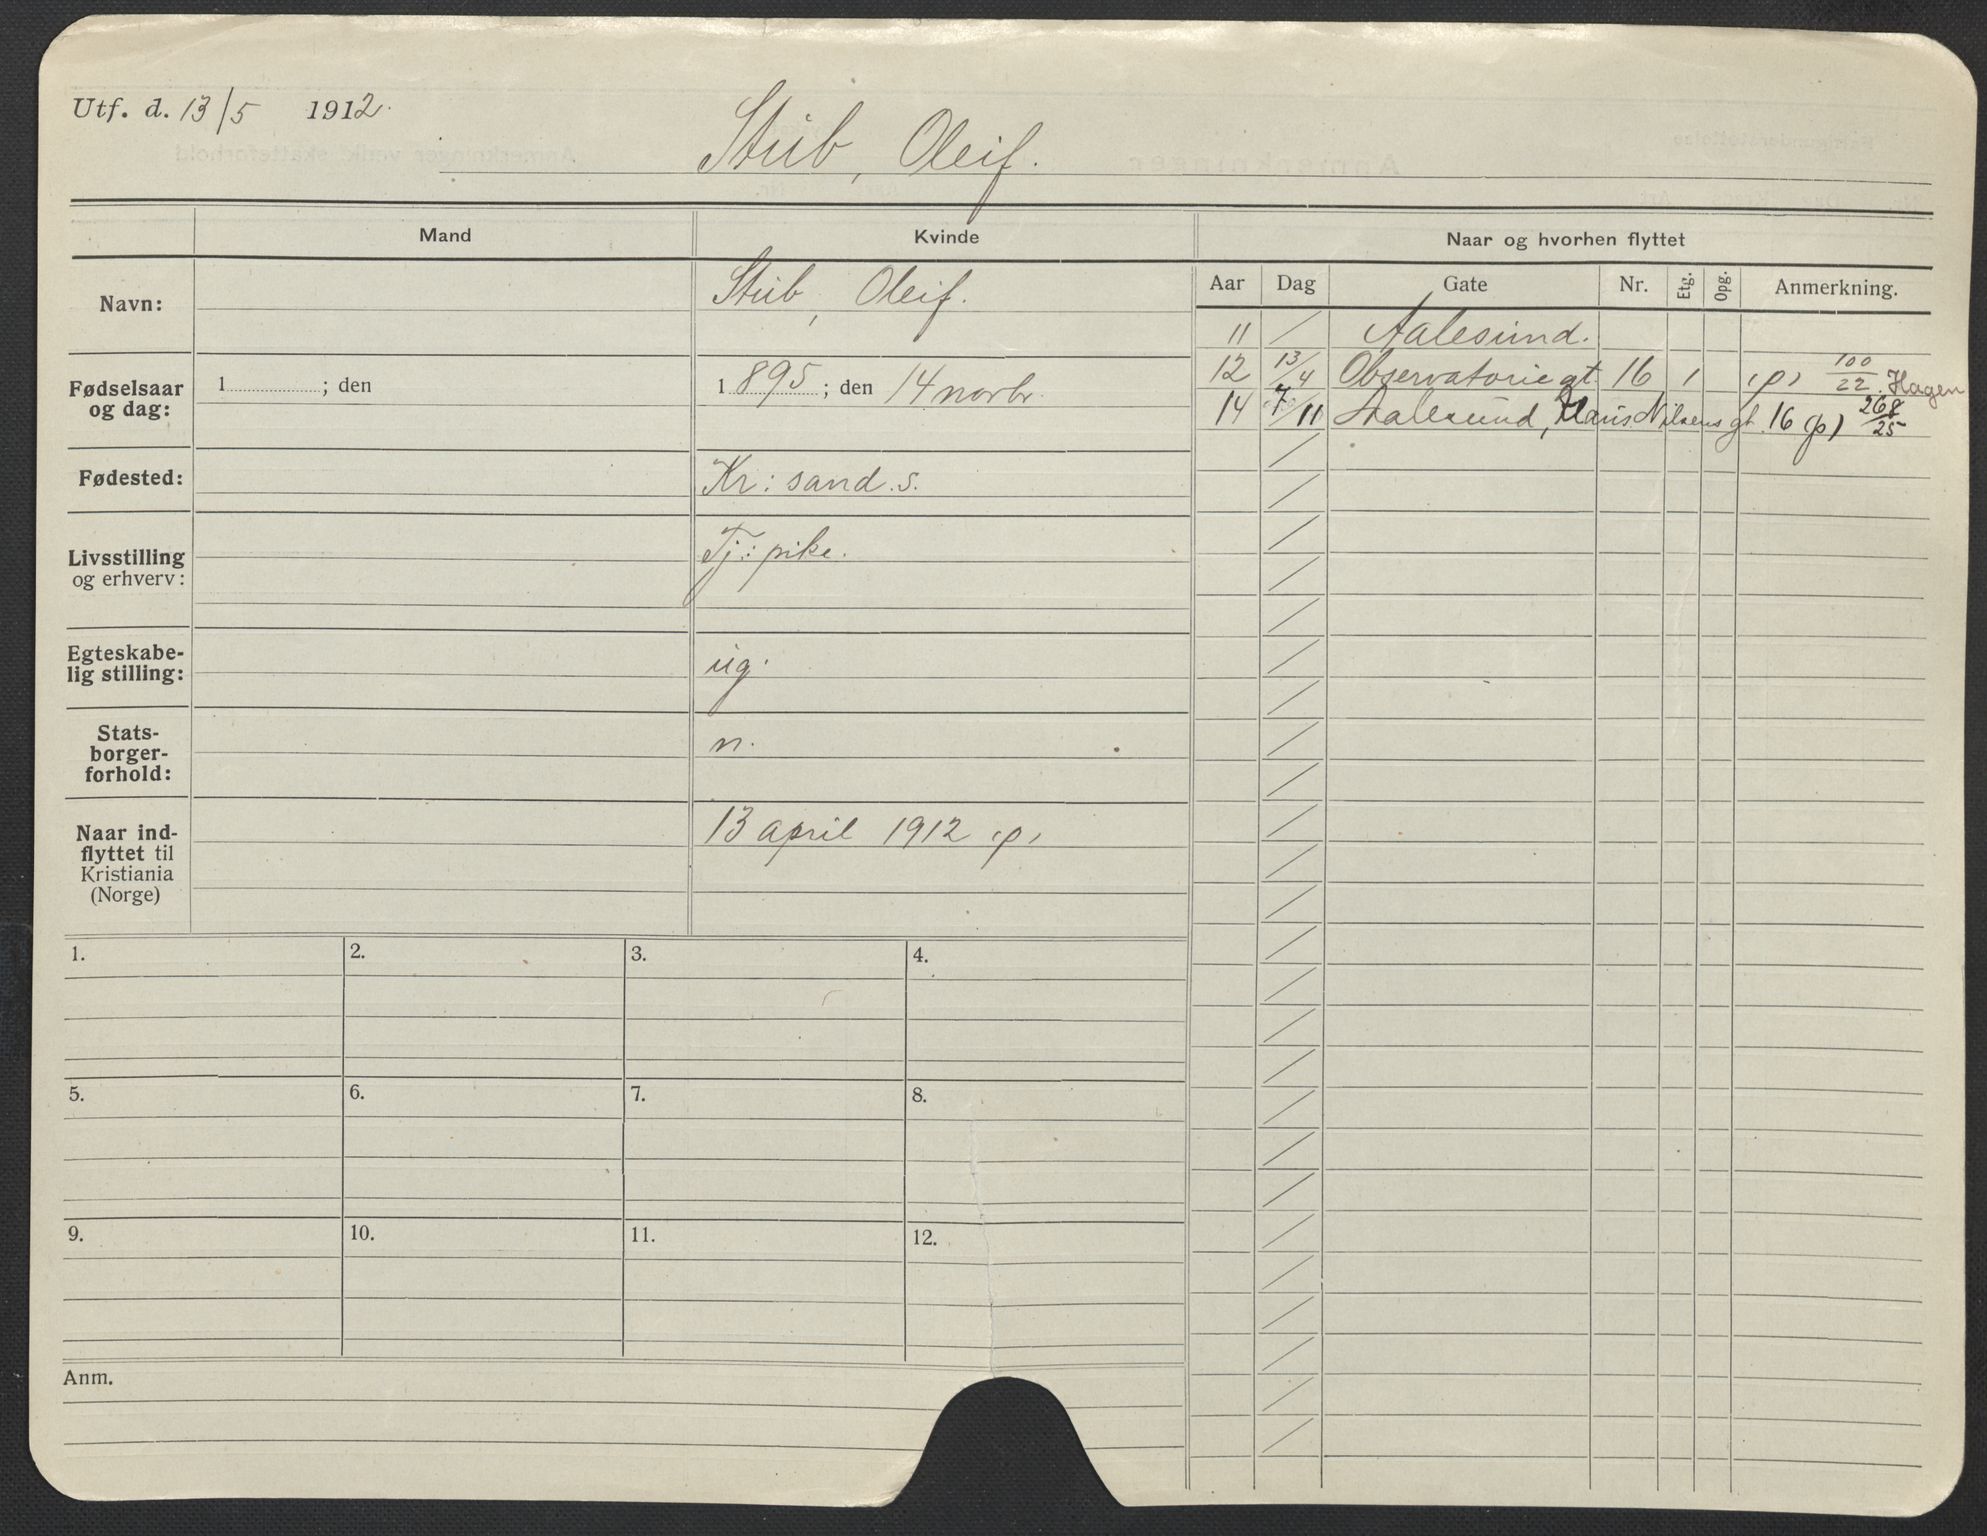 Utf. d. 13/5 1912.
Stub, Oleif.
Mand
Kvinde
Naar og hvorhen flyttet
Aar Dag Gate Nr. Etg. Opg. Anmerkning.
Navn: Stub, Oleif.
Fødselsaar og dag: 1 ; den
1 895 ; den 14 novbr.
Fødested: Kr: sand. S.
Livsstilling og erhverv: Tj: pike.
Egteskabe-
lig stilling: ug.
Stats-
borger-
forhold: n.
Naar ind-
flyttet til
Kristiania
(Norge)
13 april 1912 (p)
11 / Aalesund.
12 13/4 Observatorie gt. 16 1 (p) 100/22 Hagen
14 7/11 Aalesund, Nilsens gt. 16 (p) 268/25
1. 2. 3. 4.
5. 6. 7. 8.
9. 10. 11. 12.
Anm.